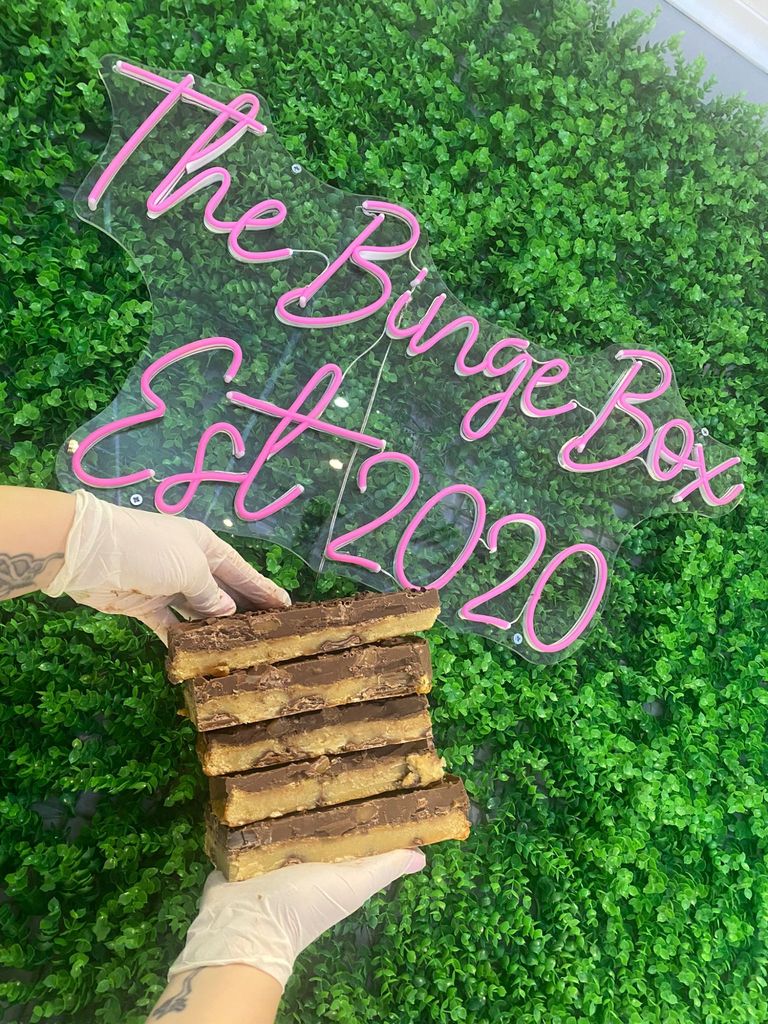 The Binge Box
Est 2020